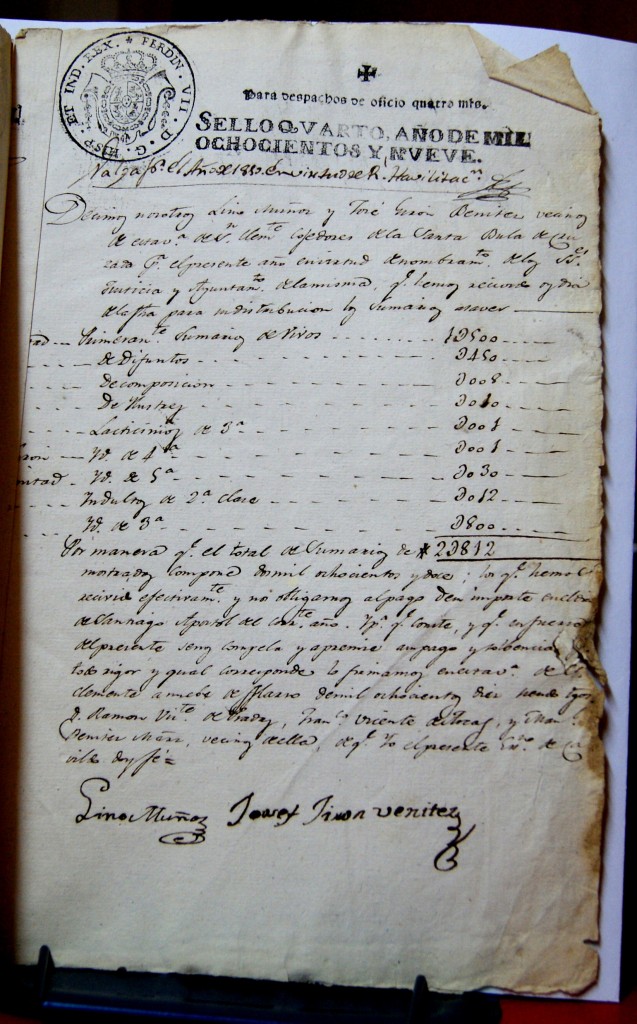 HISP. ET IND. REX. * FERDIN. VII. D. G.
Para despachos de oficio quatro mrs.
SELLO QVARTO, AÑO DE MIL
OCHOCIENTOS Y NVEVE.
Valga pa. el Año de 1810 en virtud de Rl. Havilitacn.
Decimos nosotros Lino Muñoz y José Benitez vecinos
de esta va. de Sn. Clemte. Cojedores de la Santa Bula de Cru
zada pa. el presente año en virtud de nombramto. de los Sres.
Justicia y Ayuntamto. de la misma, qe. hemos recivido oy dia
de la fha para su distribucion los Sumarios a saver
Primeramte. Sumarios de Vivos 1D500
de difuntos D450
De composicion D008
De Ilustres D010
Lacticinios de 3a D001
Yd. de 4a D001
Yd. de 5a D030
Yndultos de 2a clase D012
Yd. de 3a D800
Por manera qe. el total de Sumarios de 2D812
mostrados compone dos mil ochocientos y doce; los qe. hemos
recivido efectivamte. y nos obligamos al pago de su importe en el dia
de Santiago Apostol del corrte. año. Ypa. qe. conste, y qe. en fuerza
del presente se nos compela y apremie a su pago y solbencia
todo rigor y qual corresponde lo firmamos en esta va. de Sn.
Clemente a nuebe de Marzo de mil ochocientos diez siendo tgos
D. Ramon Vite. de, Franco. Vicente, y
Benitez, vecinos de ella, de qe. Yo el presente Esno. de Ca
vildo doy fe =
Lino Muñoz Josef Jiron Venitez